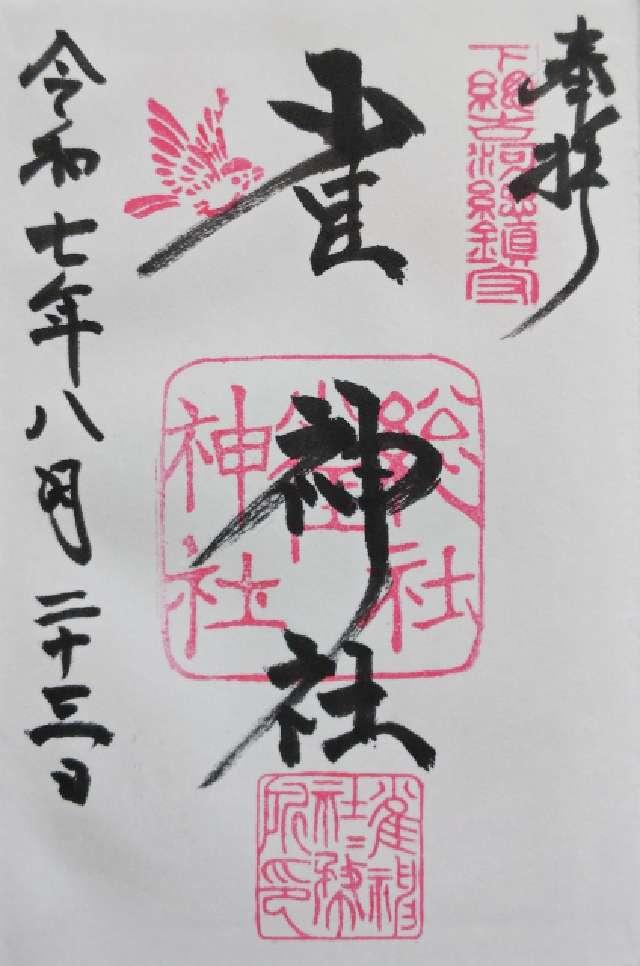 奉拝
下総古河総鎮守
雀神社
総社
雀
神社
雀神
社務
所印
令和七年八月二十三日